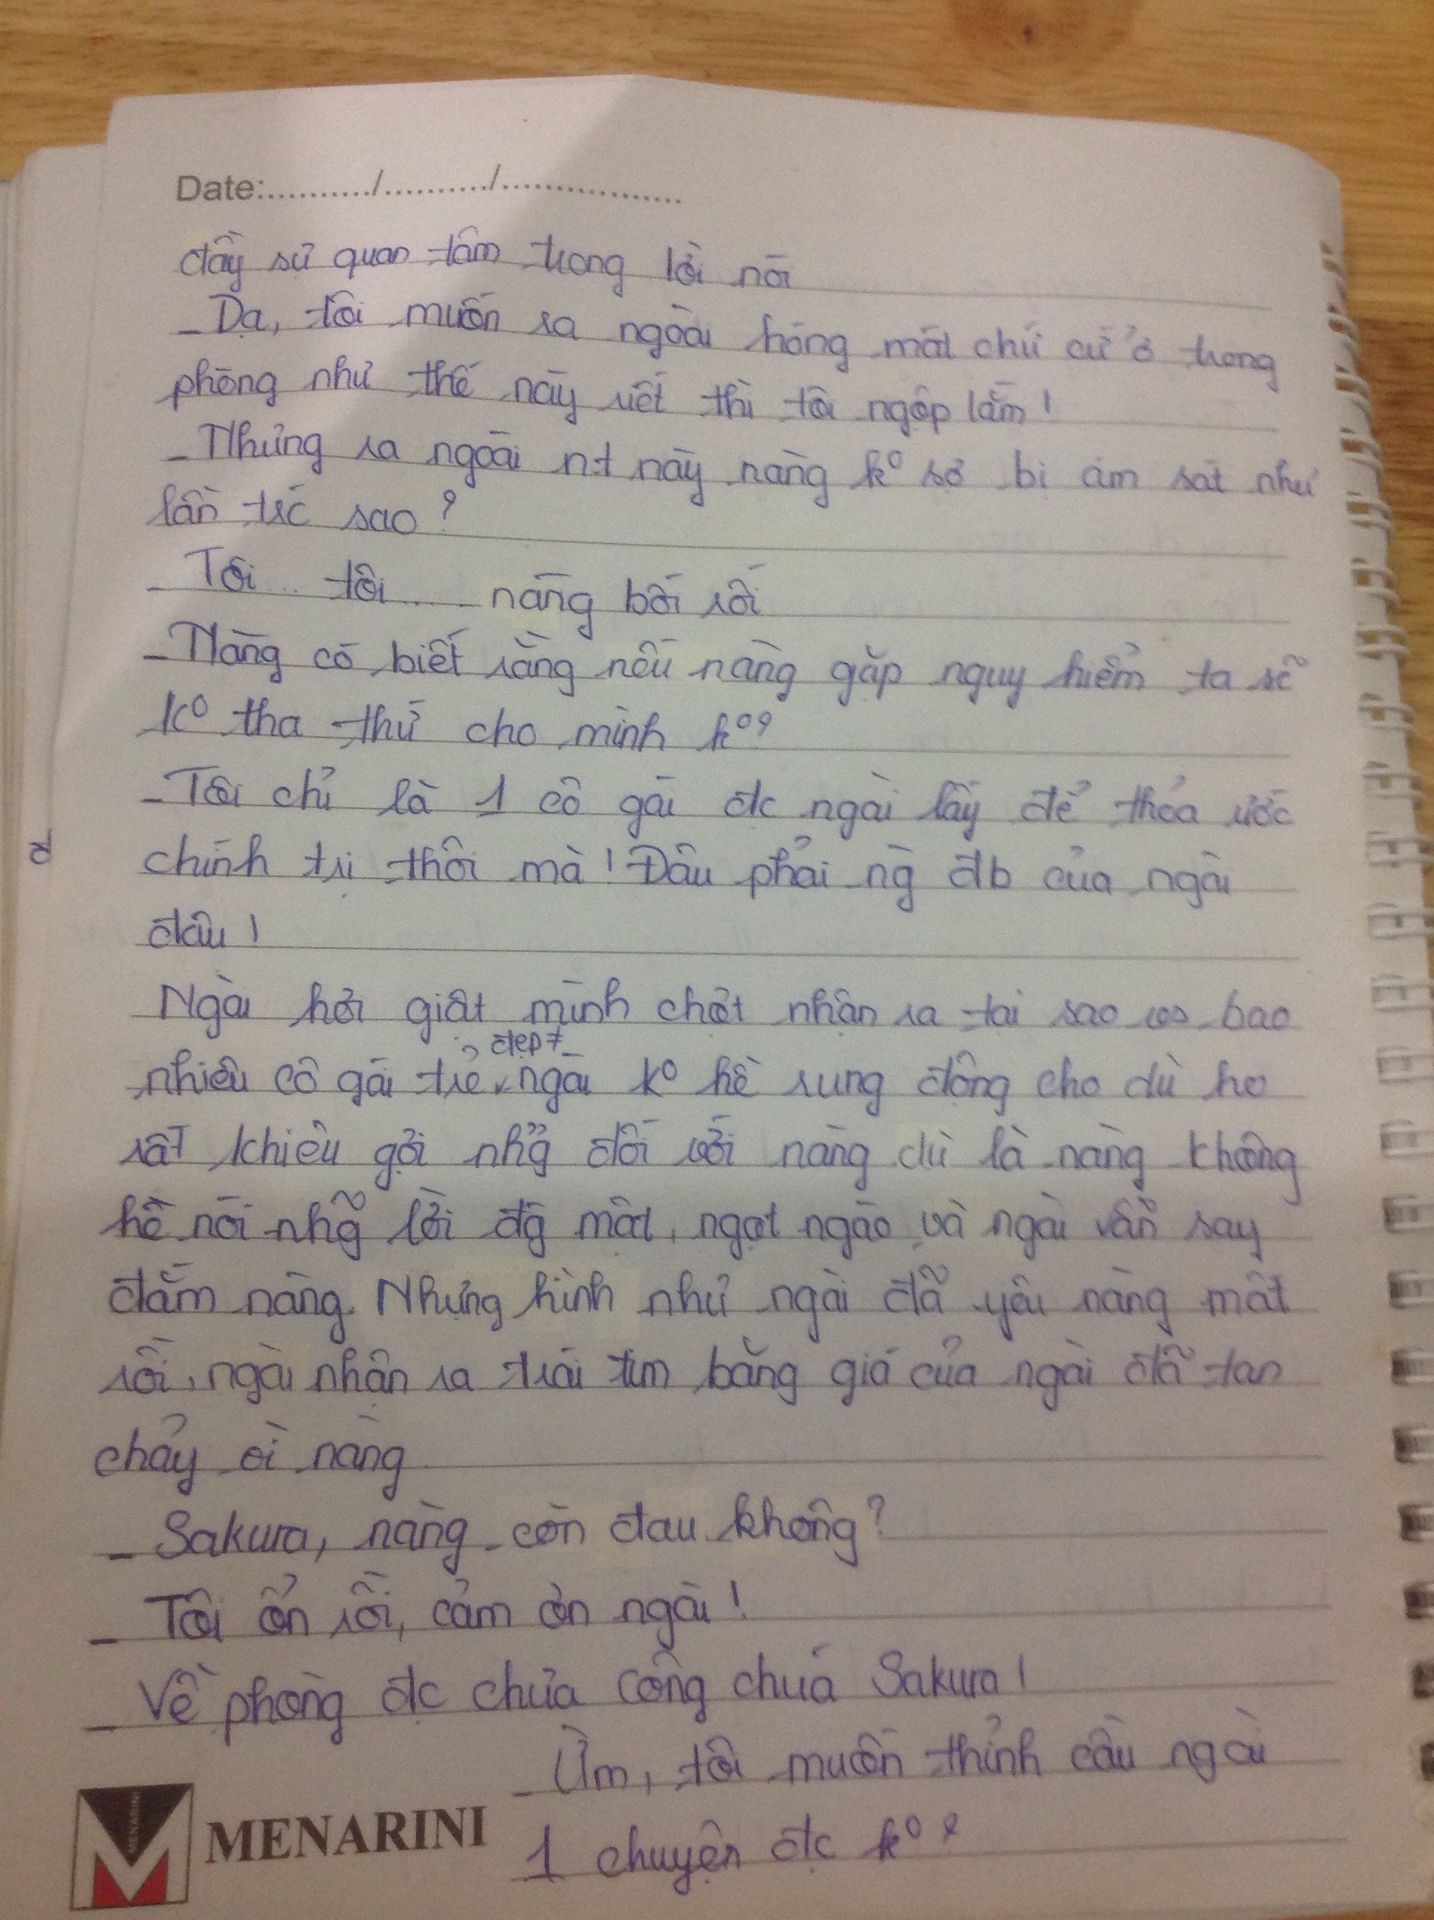 Date:........../........../................
đầy sự quan tâm trong lời nói
_Dạ, tôi muốn ra ngoài hóng mát chứ cứ ở trong
phòng như thế này riết thì tôi ngộp lắm!
_Nhưng ra ngoài nt này nàng kº sợ bị ám sát như
lần trc sao?
_Tôi... tôi... nàng bối rối
_Nàng có biết rằng nếu nàng gặp nguy hiểm ta sẽ
kº tha thứ cho mình kº?
_Tôi chỉ là 1 cô gái đc ngài lấy để thỏa ước
chính trị thôi mà! Đâu phải ng đb của ngài
đâu!
Ngài hơi giật mình chợt nhận ra tại sao bao
nhiêu cô gái trẻ, đẹp ≠ ngài kº hề rung động cho dù họ
rất khiêu gợi nhg đối với nàng dù là nàng không
hề nói nhg lời đg mật, ngọt ngào và ngài vẫn say
đắm nàng. Nhưng hình như ngài đã yêu nàng mất
rồi, ngài nhận ra trái tim băng giá của ngài đã tan
chảy nàng
_ Sakura, nàng còn đau không?
_ Tôi ổn rồi, cảm ơn ngài!
_ Về phòng đc chưa công chúa Sakura!
_ Ừm, tôi muốn thỉnh cầu ngài
1 chuyện đc kº?
MENARINI